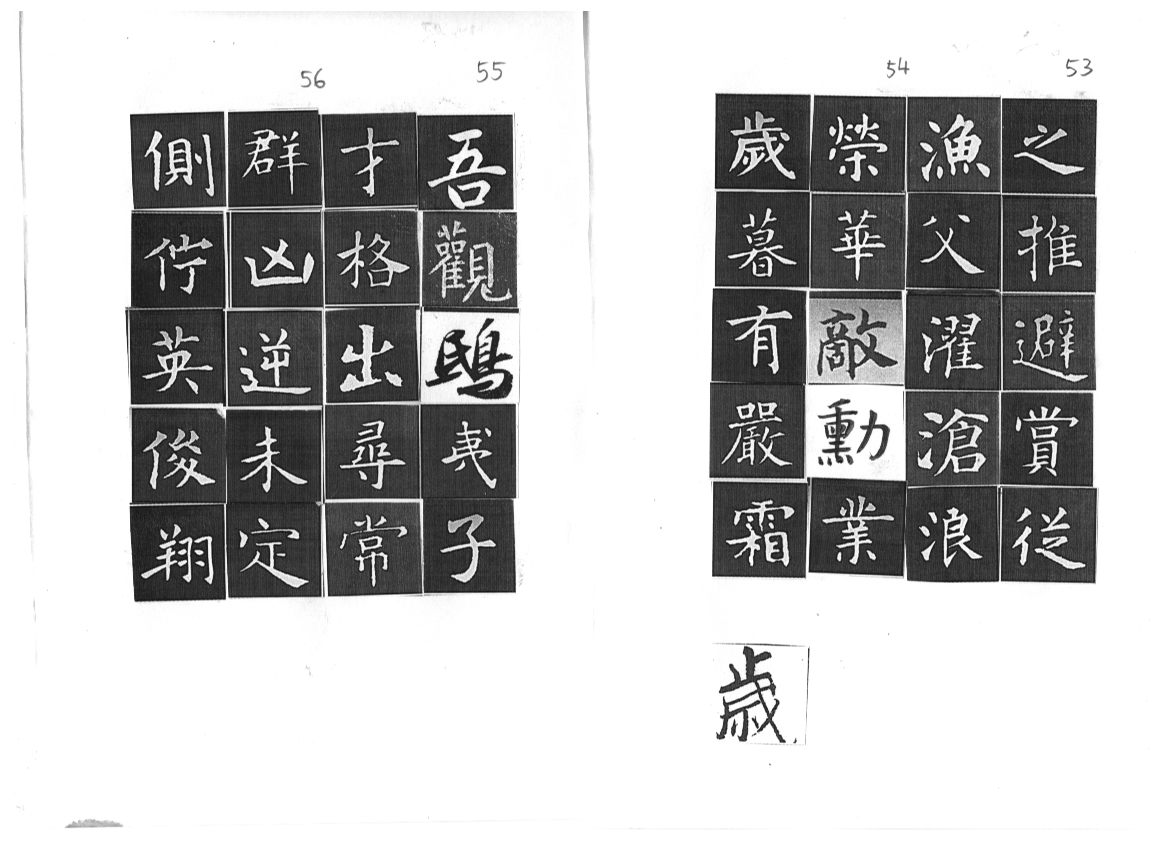 53
之推避賞從
漁父濯滄浪
54
榮華敵勳業
歲暮有嚴霜
歲
55
吾觀鴟夷子
才格出尋常
56
群凶逆未定
側佇英俊翔